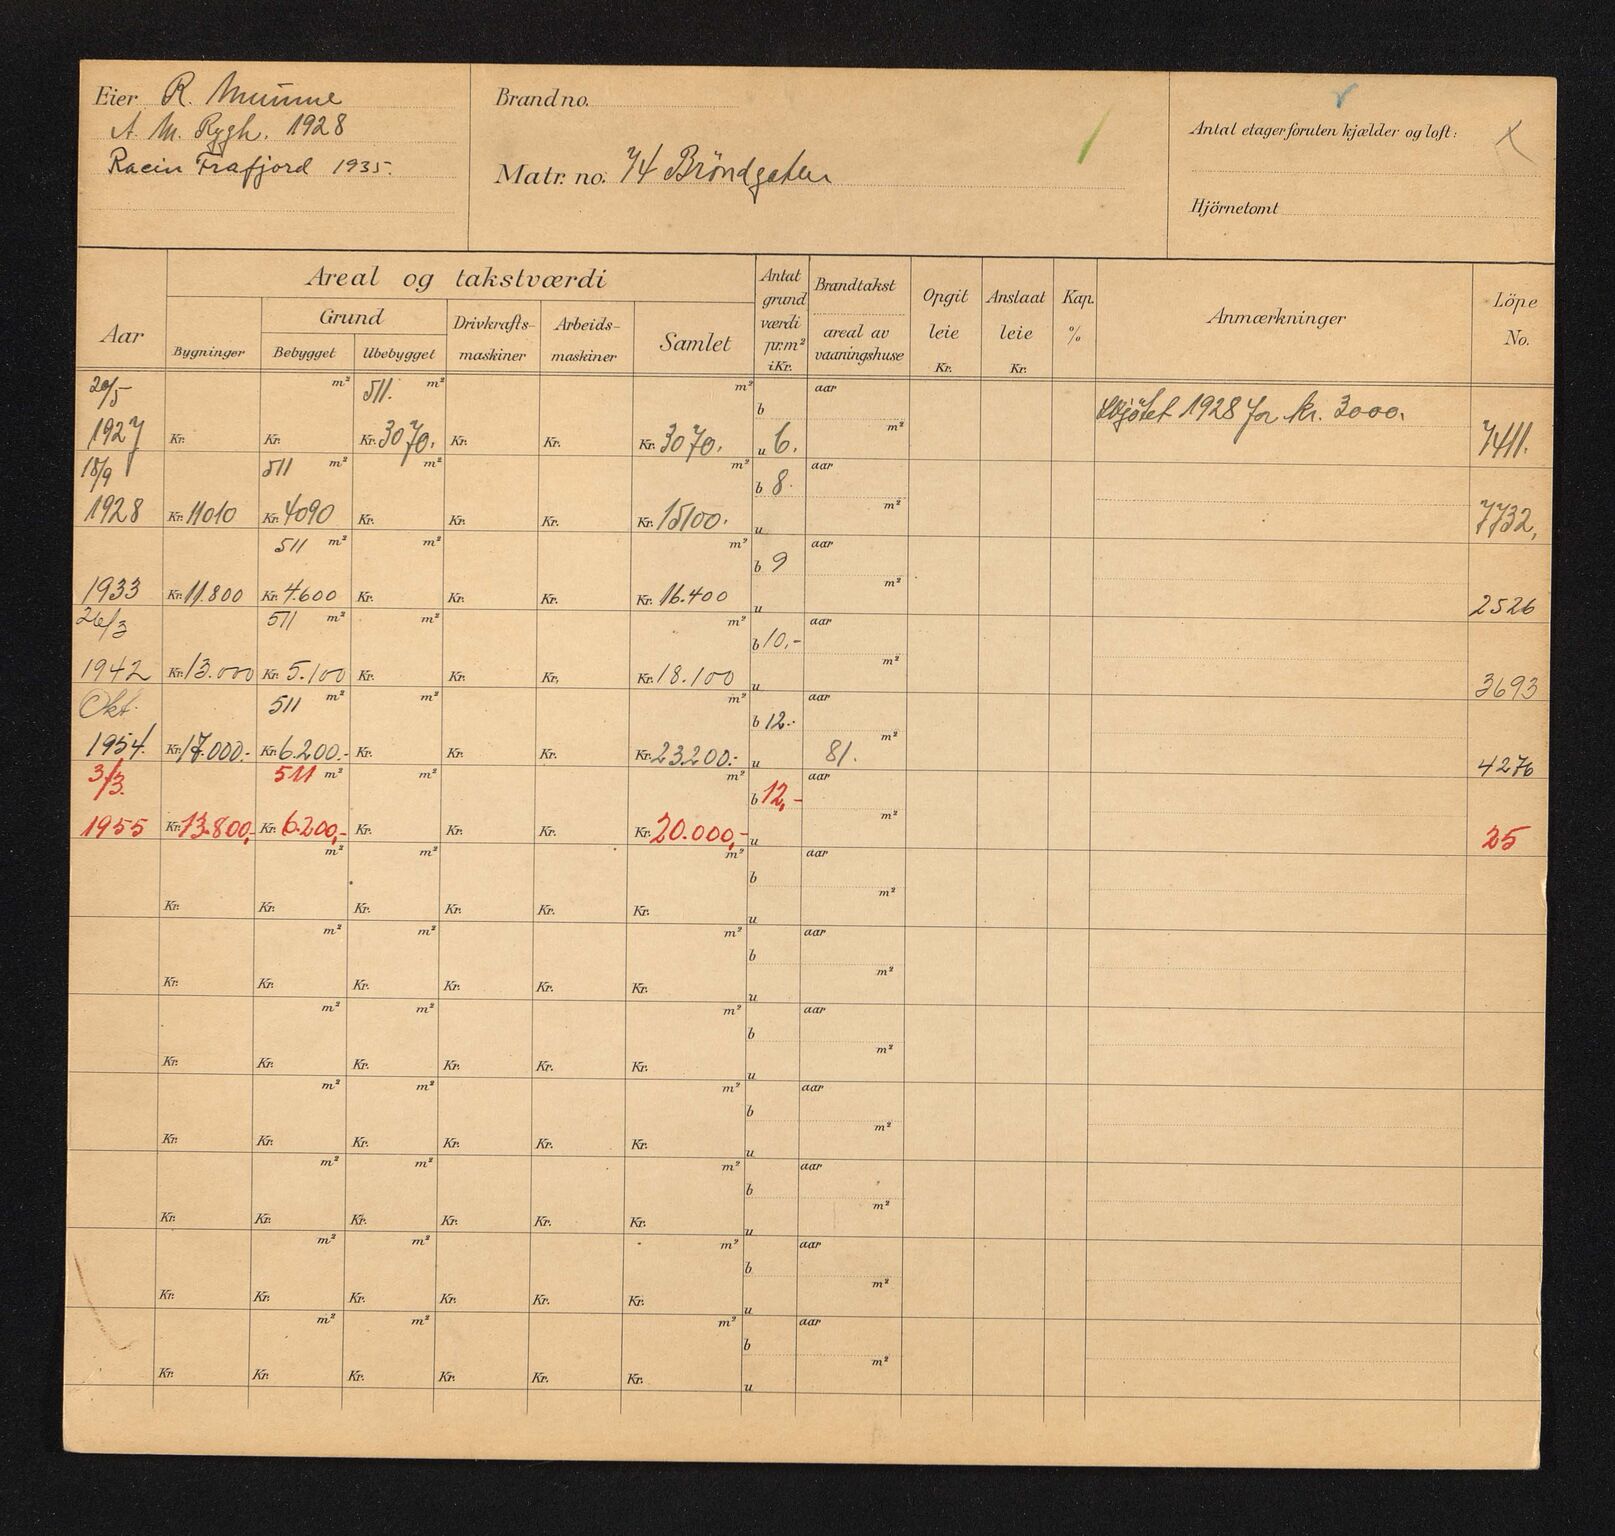 Eier R. Mumme
A. M. Rygh. 1928
Racin Trafjord 1935.
Brandno.
Matr. no. 74 Bröndgaten
Antal etager foruten kjælder og loft:
Hjörnetomt
Aar
Areal og takstværdi
Bygninger
Grund
Bebygget Ubebygget
Drivkrafts-
maskiner
Arbeids-
maskiner
Samlet
Antat
grund
værdi
pr.m²
i Kr.
Brandtakst
areal av
vaaningshuse
Opgit
leie
Kr.
Anslaat
leie
Kr.
Kap.
%
Anmærkninger
Löpe
No.
20/5 m² 511. m² m² aar
b Kjøtet 1928 for kr. 3000.
1927 Kr. Kr. Kr. 3070. Kr. Kr. Kr. 3070. u 6. m² 7411.
18/9 511 m² m² m² aar
b 8.
1928 Kr. 11010 Kr. 4090 Kr. Kr. Kr. Kr. 15100. u m² 7732.
511 m² m² m² aar
b 9
1933 Kr. 11.800 Kr. 4.600 Kr. Kr. Kr. Kr. 16.400 u m² 2526
26/3 511 m² m² m² aar
b 10,-
1942 Kr. 13.000 Kr. 5.100 Kr. Kr. Kr. Kr. 18.100 u m² 3693
Okt. 511 m² m² m² aar
b 12.-
1954. Kr. 17.000.- Kr. 6.200.- Kr. Kr. Kr. Kr. 23.200.- u 81. m² 4276
3/3. 511 m² m² m² aar
b 12,-
1955 Kr. 13.800,- Kr. 6.200,- Kr. Kr. Kr. Kr. 20.000,- u m² 25
m² m² m² aar
b
Kr. Kr. Kr. Kr. Kr. Kr. u m²
m² m² m² aar
b
Kr. Kr. Kr. Kr. Kr. Kr. u m²
m² m² m² aar
b
Kr. Kr. Kr. Kr. Kr. Kr. u m²
m² m² m² aar
b
Kr. Kr. Kr. Kr. Kr. Kr. u m²
m² m² m² aar
b
Kr. Kr. Kr. Kr. Kr. Kr. u m²
m² m² m² aar
b
Kr. Kr. Kr. Kr. Kr. Kr. u m²
m² m² m² aar
b
Kr. Kr. Kr. Kr. Kr. Kr. u m²